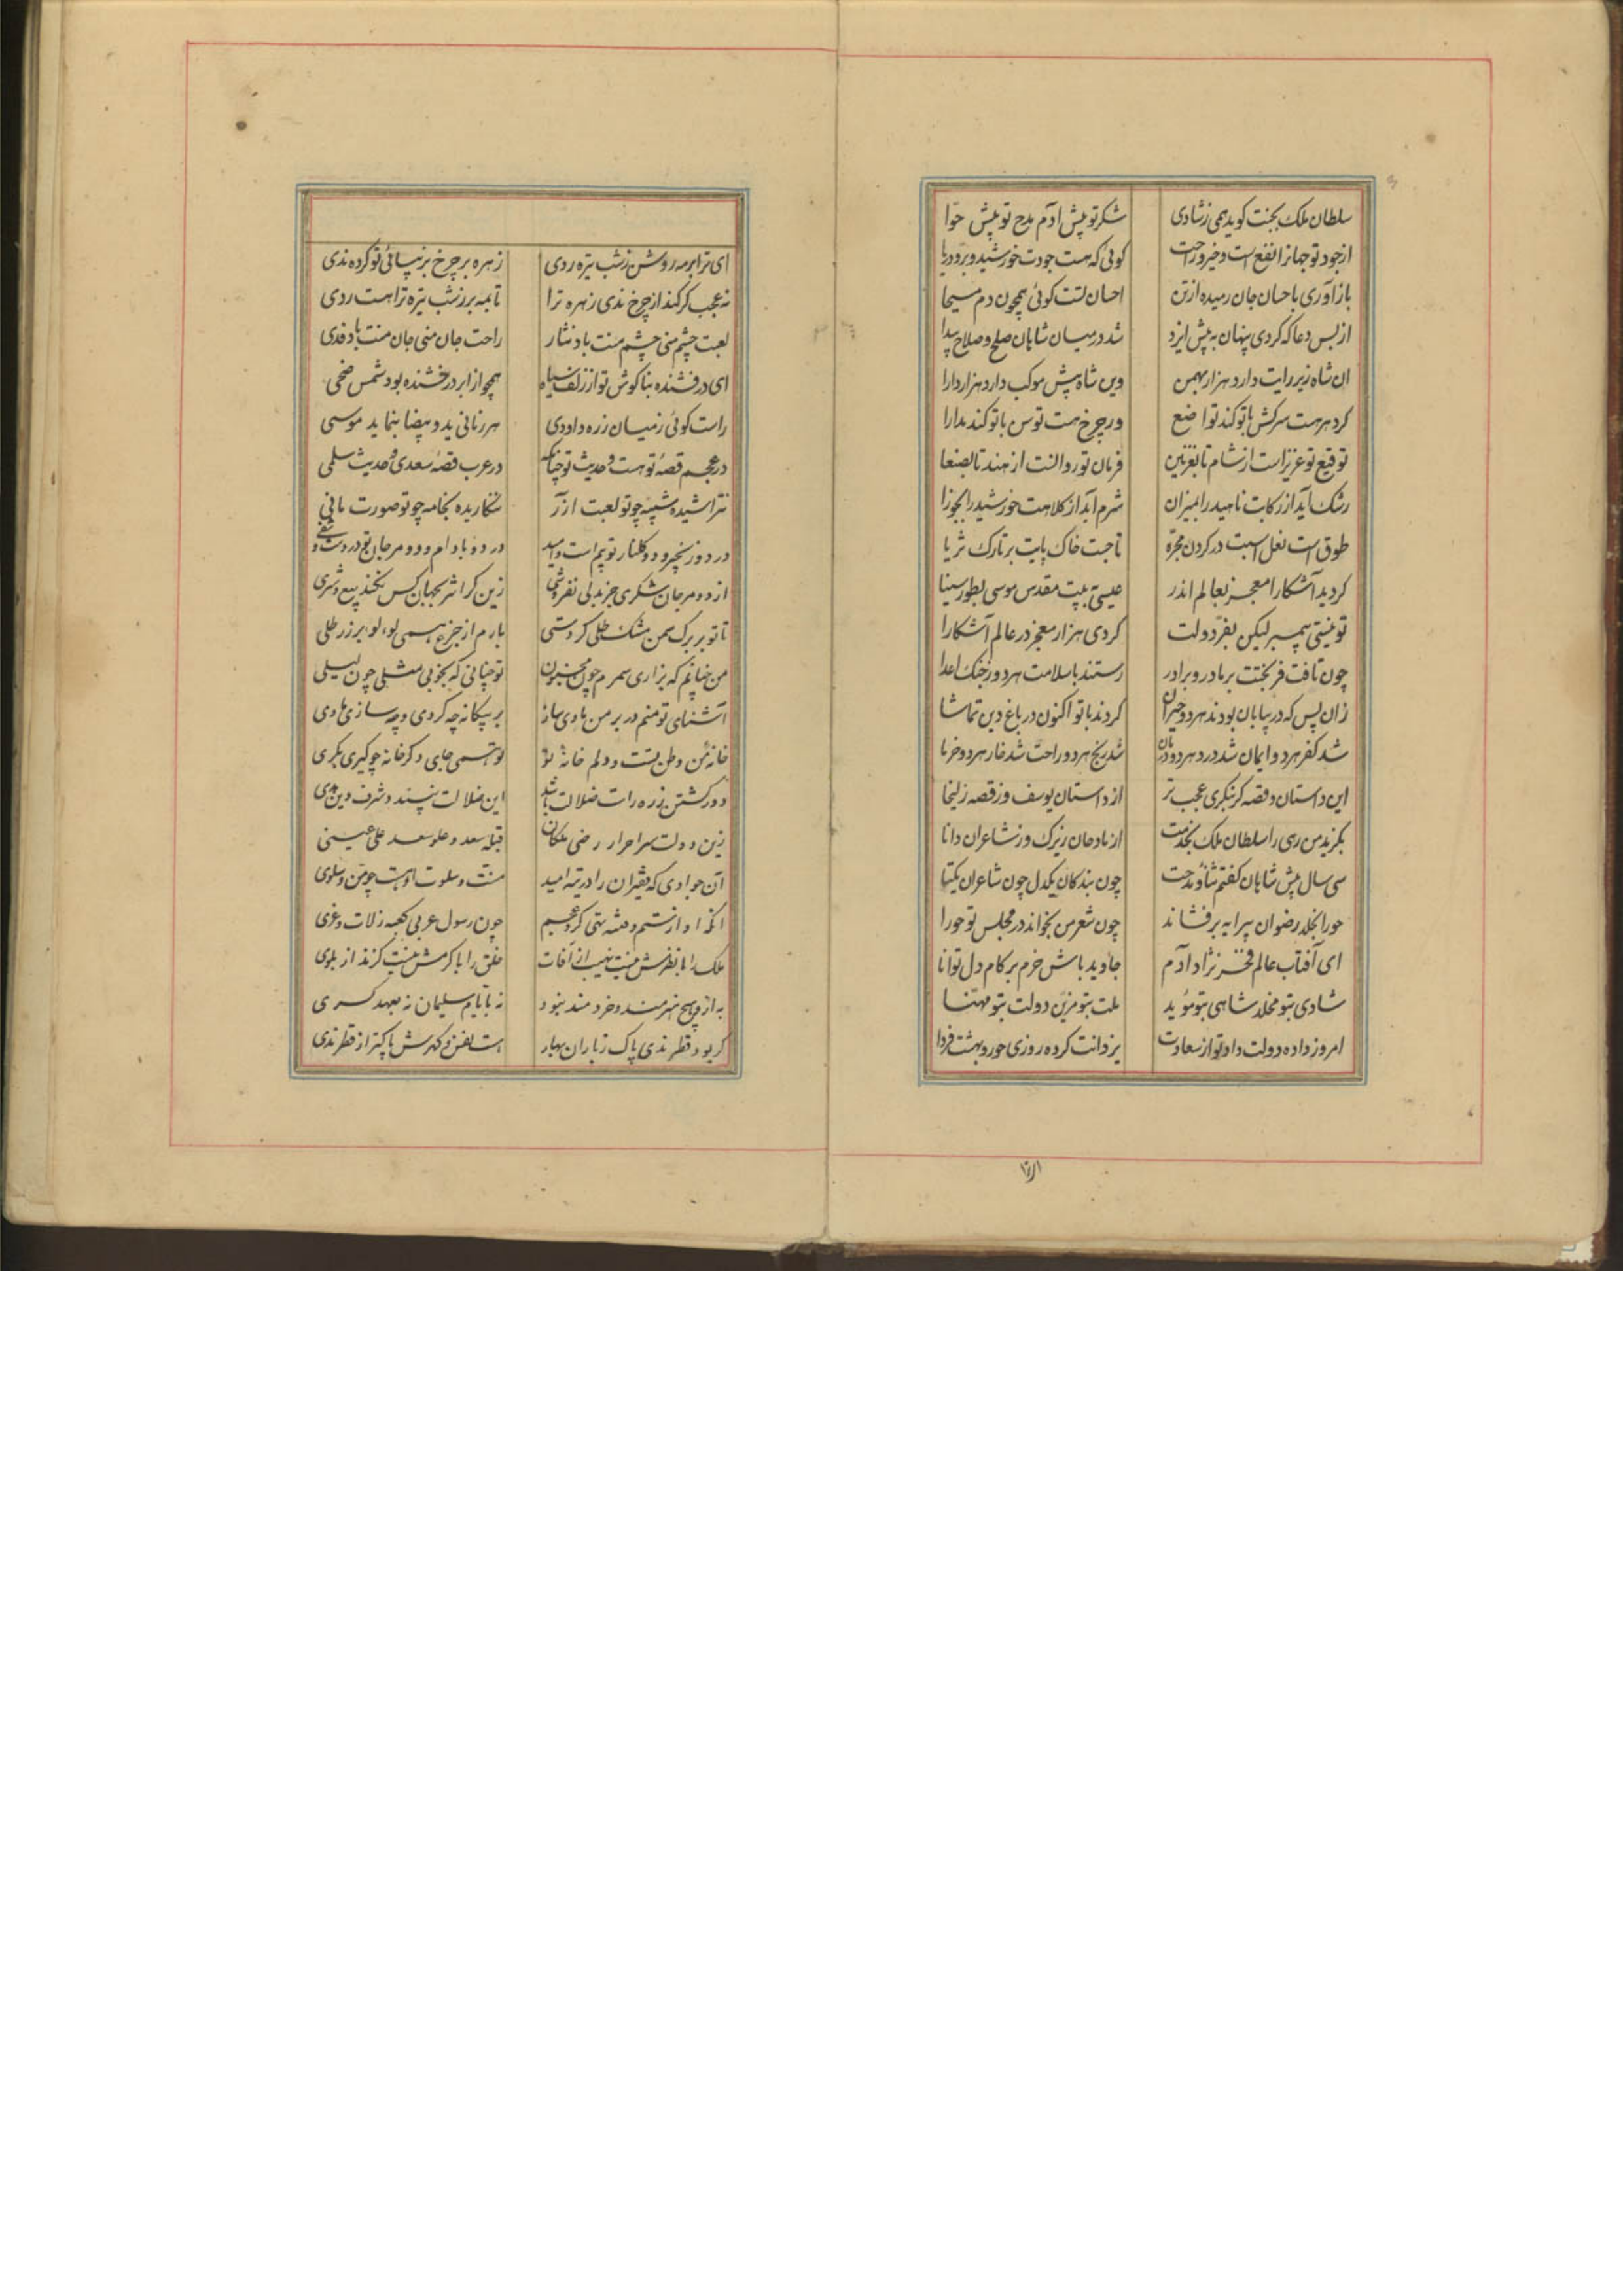 سلطان ملک بجنت کوید همی ز شادی شکر تو پیش آدم مدح تو پیش حوا
از جود تو جهانرا نفع است و خیر و راحت کوئی که هست جودت خورشید و بر و دریا
باز آوری باحسان جان رمیده از تن احسان تست کوئی همچون دم مسیحا
از بس دعا که کردی پنهان به پیش ایزد شد در میان شاهان صلح و صلاح پیدا
ان شاه زیر رایت دارد هزار بهمن وین شاه پیش موکب دارد هزار دارا
کر دهر هست سرکش با تو کند تواضع ور چرخ هست توسن با تو کند مدارا
توقیع تو عزیز است از شام تا بغزنین فرمان تو روانست از هند تا بصنعا
رشک آید از رکابت ناهید را بمیزان شرم آید از کلاهت خورشید را بجوزا
طوق است نعل اسبت در کردن مجره تاجست خاک پایت بر تارک ثریا
کردید آشکارا معجز بعالم اندر عیسی به بیت مقدس موسی بطور سینا
تو نیستی پیمبر لیکن بفر دولت کردی هزار معجز در عالم آشکارا
چون تافت فر بختت بر مادر و برادر رستند با سلامت هر دو ز جنک اعدا
زان پس که در بیابان بودند هر دو حیران کردند با تو اکنون در باغ دین تماشا
شد کفر هر دو ایمان شد درد هر دو درمان شد رنج هر دو راحت شد خار هر دو خرما
این داستان و قصه کر بنکری عجب تر از داستان یوسف وز قصه زلیخا
بکزید من رهی را سلطان ملک بخدمت از مادحان زیرک وز شاعران دانا
سی سال پیش شاهان کفتم ثنا و مدحت چون بندکان یکدل چون شاعران یکتا
حورا بخلد رضوان پیرایه برفشاند چون شعر من بخواند در مجلس تو حورا
ای آفتاب عالم فخر نژاد آدم جاوید باش خرم بر کام دل توانا
شادی بتو مخلد شاهی بتو مؤید ملت بتو مزین دولت بتو مهنا
امروز داده دولت داد تو از سعادت یزدانت کرده روزی حور و بهشت فردا
ای ترا بر مه روشن ز شب تیره ردی زهره بر چرخ بزیبائی تو کرده ندی
نه عجب کر کند از چرخ ندی زهره ترا تا بمه بر ز شب تیره ترا هست ردی
لعبت چشم منی چشم منت باد نثار راحت جان منی جان منت باد فدی
ای درفشنده بناکوش تو از زلف سیاه همچو از ابر درخشنده بود شمس ضحی
راست کوئی ز میان زره داودی هر زمانی ید و بیضا بنماید موسی
در عجم قصه تو هست و حدیث تو چنانکه در عرب قصه سعدی و حدیث سلمی
نتراشیده شبیه چو تو لعبت آزر ننکاریده بخامه چو تو صورت مانی
در دو زنجیر و دو کلنار تو بیم است و امید در دو بادام و دو مرجان تو درد است و شفی
از دو مرجان شکری جز بدلی نفروشی زین کرانتر بجهان کس نکند بیع و شری
تا تو بر برک سمن مشک طلی کردستی بارم از جزع همی لؤلؤ بر زر طلی
من چنانم که بزاری سمرم چون مجنون تو چنانی که بخوبی مثلی چون لیلی
آشنای تو منم در بر من مادی ساز بر بیکانه چه کردی و چه سازی مادی
خانه من وطن تست و دلم خانه تو تو همی جای دکر خانه چو کیری بکری
دور کشتن ز ره راست ضلالت باشد این ضلالت نپسند د شرف دین هدی
زین دولت سر احرار رضی ملکان قبله سعد و علو سعد علی عیسی
آن جوادی که فقیران را در تیه امید منت و سلوت او هست چو من و سلوی
آنکه او از ستم و فتنه تهی کرد عجم چون رسول عربی کعبه ز لات و عزی
ملک را با نظرش نیست نهیب از آفات خلق را با کرمش نیست کزند از بلوی
به ازو هیچ هنرمند و خردمند نبود نه بایام سلیمان نه بعهد کسری
کر بود قطر ندی پاک ز باران بهار هست نفس و کهرش پاکتر از قطر ندی